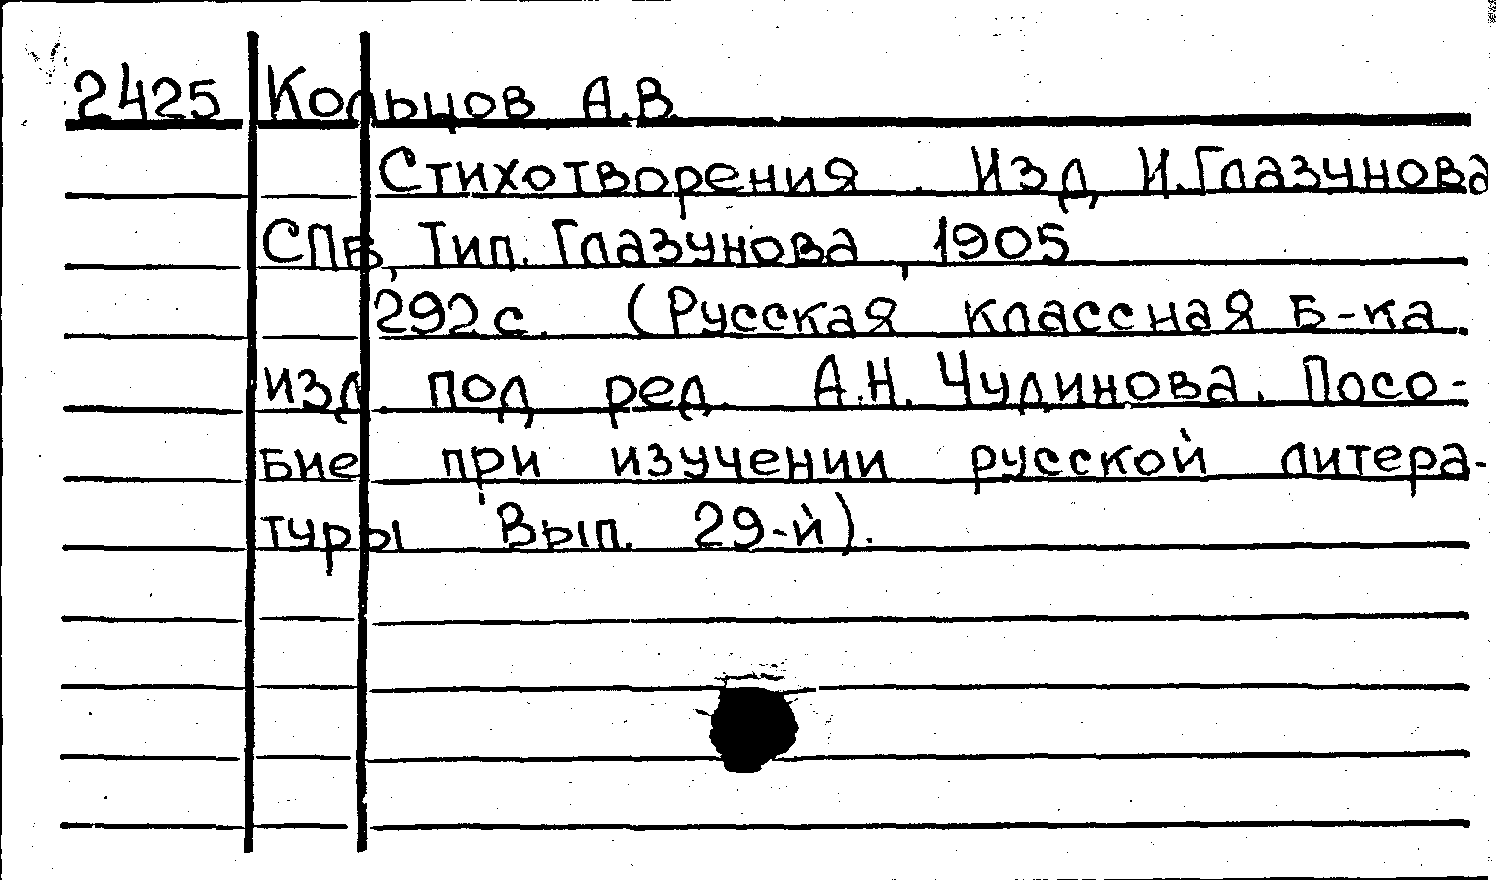 2425 Кольцов А.В.
Стихотворения. Изд И.Глазунова
СПБ, Тип. Глазунова, 1905
292 с. (Русская классная Б-ка.
изд. под ред. А.Н. Чудинова. Посо-
бие при изучении русской литера-
туры Вып. 29-й).